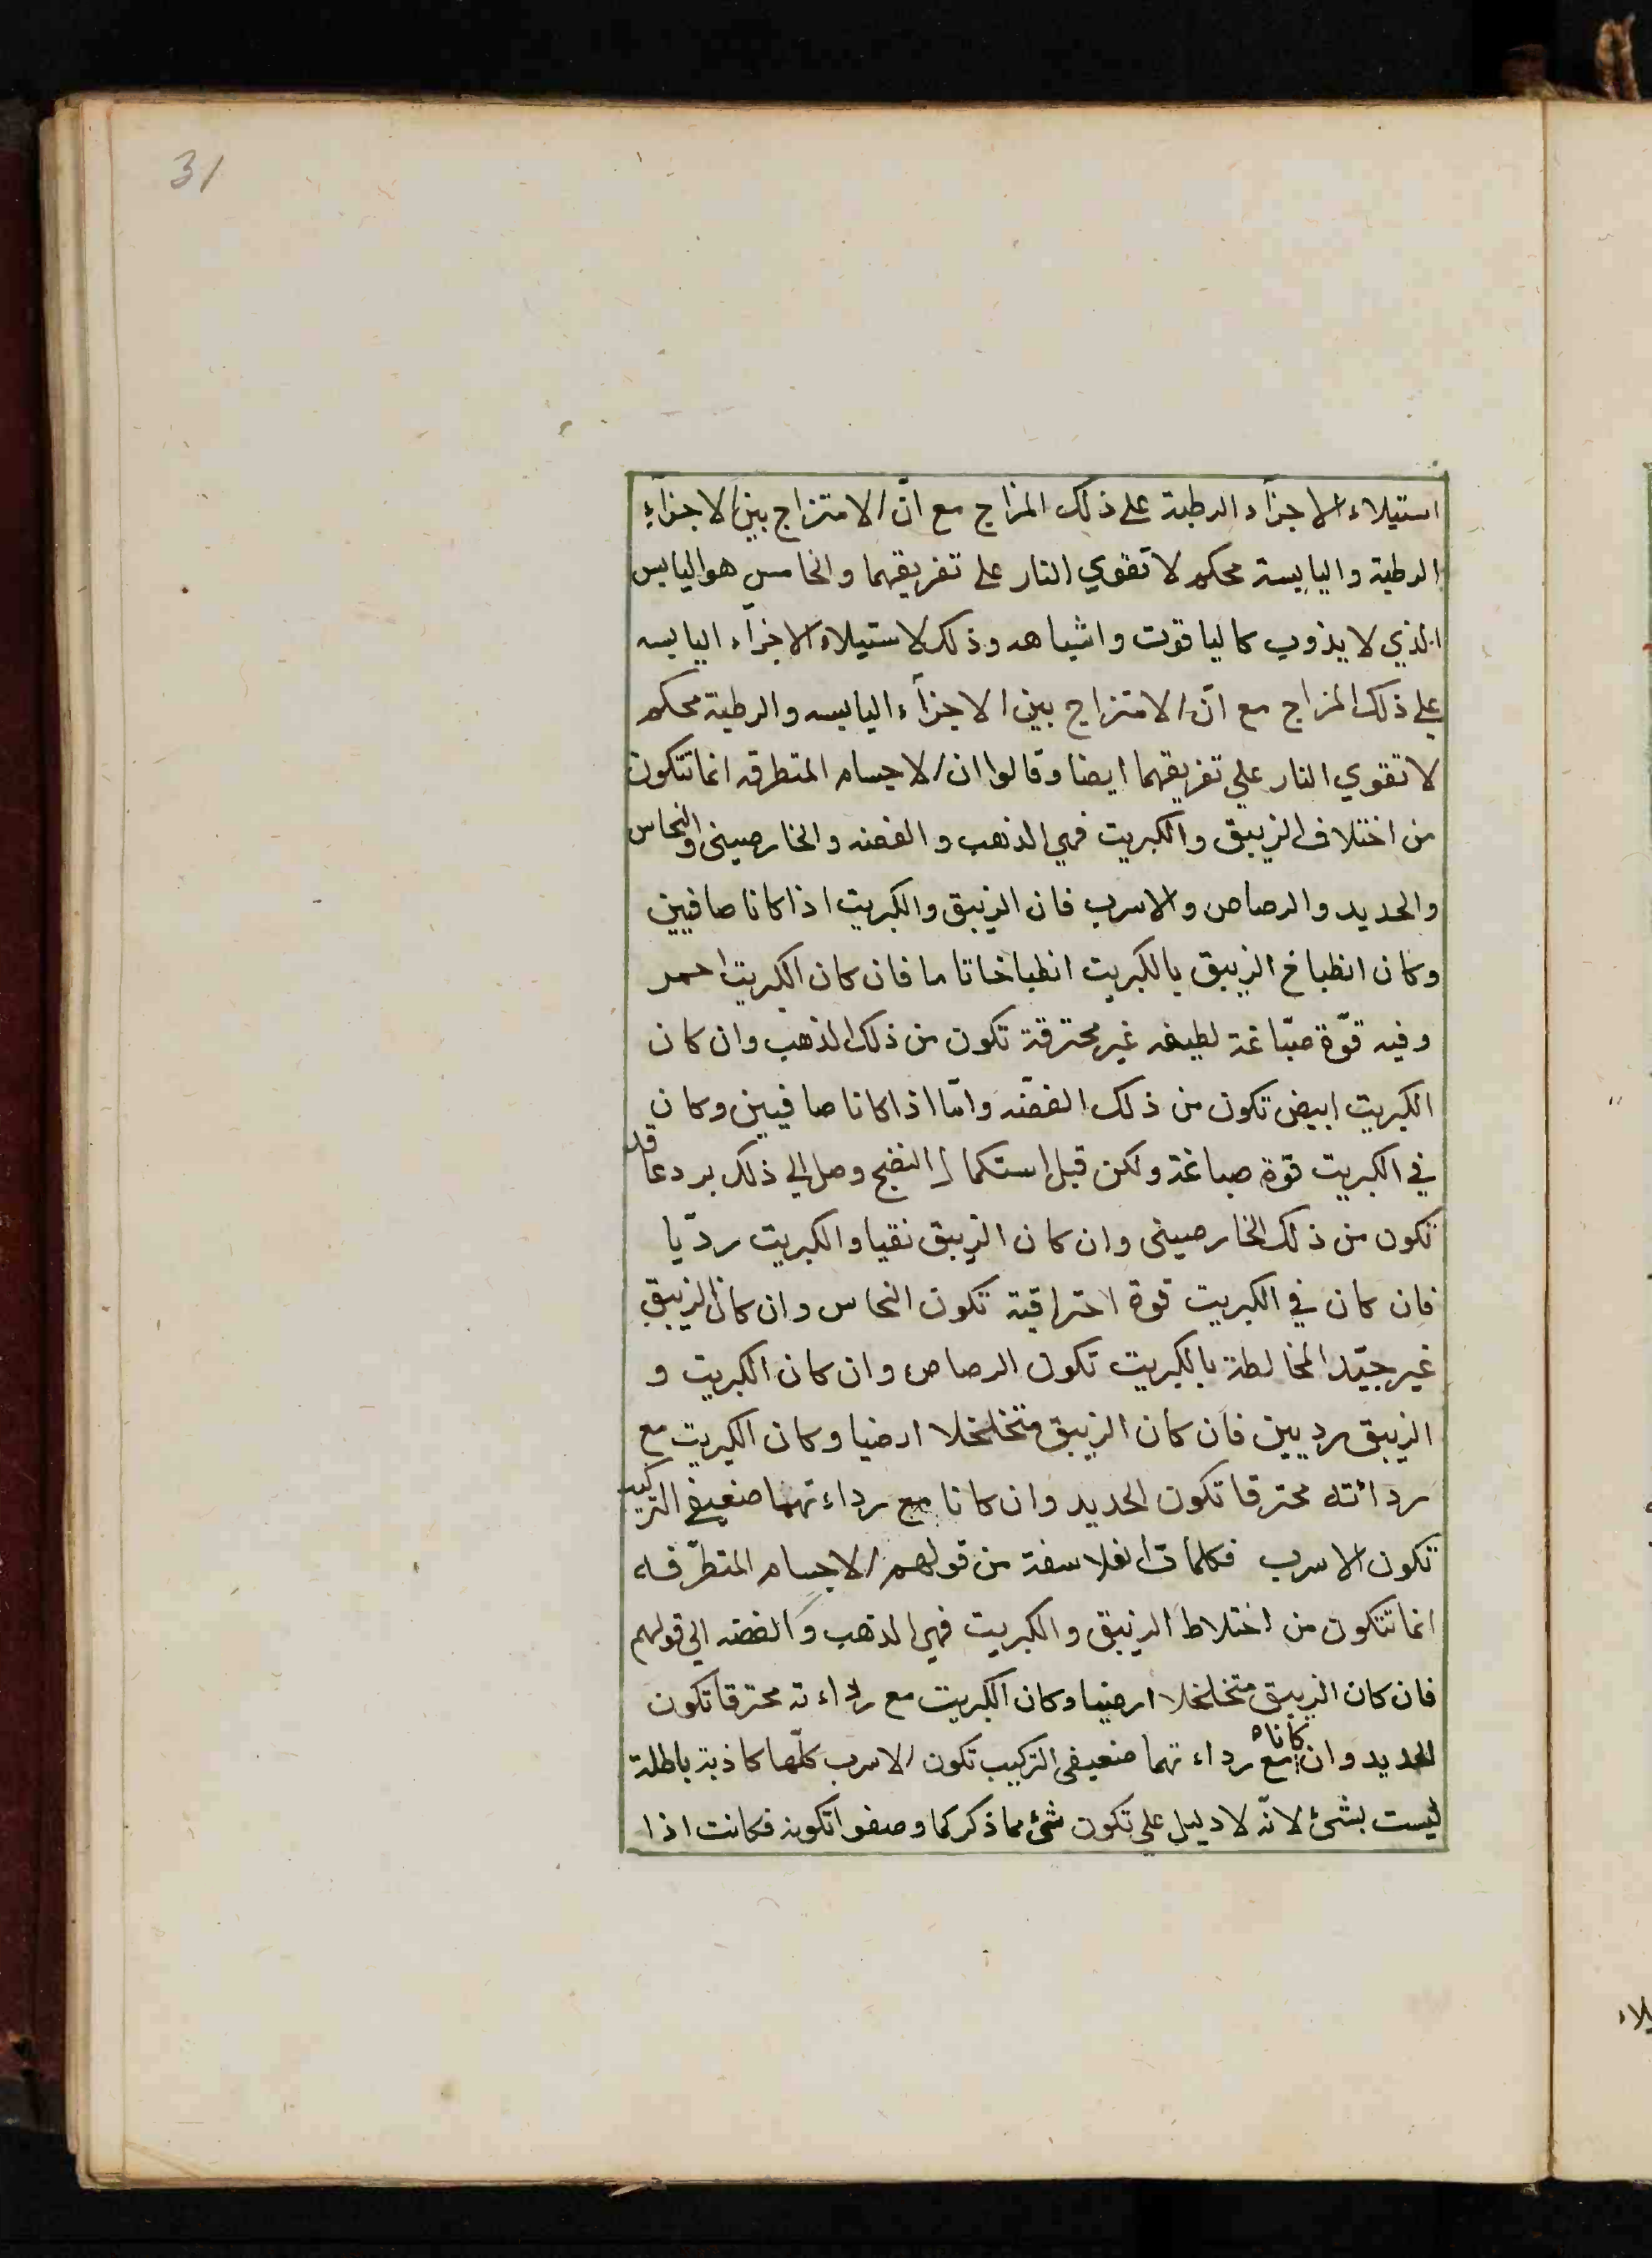 31
استيلاء الاجزآء الرطبة على ذلك المزاج مع انّ الامتزاج بين الاجزآء
الرطبة واليابسة محكم لا تقوي النار على تفريقهما والخامس هو اليابس
الذي لا يذوب كالياقوت واشباهه وذلك لاستيلاء الاجزآء اليابسه
على ذلك المزاج مع انّ الامتزاج بين الاجزآء اليابسه والرطبة محكم
لا تقوي النار علي تفريقهما ايضا وقالوا ان الاجسام المتطرقه انما تتكون
من اختلاف الزيبق والكبريت فهي الذهب والفضه والخارصينى والنحاس
والحديد والرصاص والاسرب فان الزيبق والكبريت اذا كانا صافيين
وكان انطباخ الزيبق بالكبريت انطباخا تاما فان كان الكبريت احمر
وفيه قوّة صبّاغة لطيفه غير محترقة تكون من ذلك الذهب وان كان
الكبريت ابيض تكون من ذلك الفضّه وامّا اذا كانا صافيين وكان
في الكبريت قوة صباغة ولكن قبل استكمال النضج وصل الي ذلك برد عاقد
تكون من ذلك الخارصينى وان كان الزيبق نقيا والكبريت رديّا
فان كان في الكبريت قوة احتراقية تكون النحاس وان كان الزيبق
غير جيّد المخالطة بالكبريت تكون الرصاص وان كان الكبريت و
الزيبق رديين فان كان الزيبق متخلخلا ارضيا وكان الكبريت مع
ردائته محترقا تكون الحديد وان كانا مع رداءتهما ضعيفي التركيب
تكون الاسرب فكلمات الفلاسفة من قولهم الاجسام المتطرّقه
انما تتكون من اختلاط الزيبق والكبريت فهي الذهب والفضه الي قولهم
فان كان الزيبق متخلخلا ارضيا وكان الكبريت مع رداءته محترقا تكون
الحديد وان كانا مع رداءتهما ضعيفى التركيب تكون الاسرب كلّها كاذبة باطلة
ليست بشئ لانّه لا دليل على تكون شئ مما ذكر كما وصفوا تكونه فكانت اذا